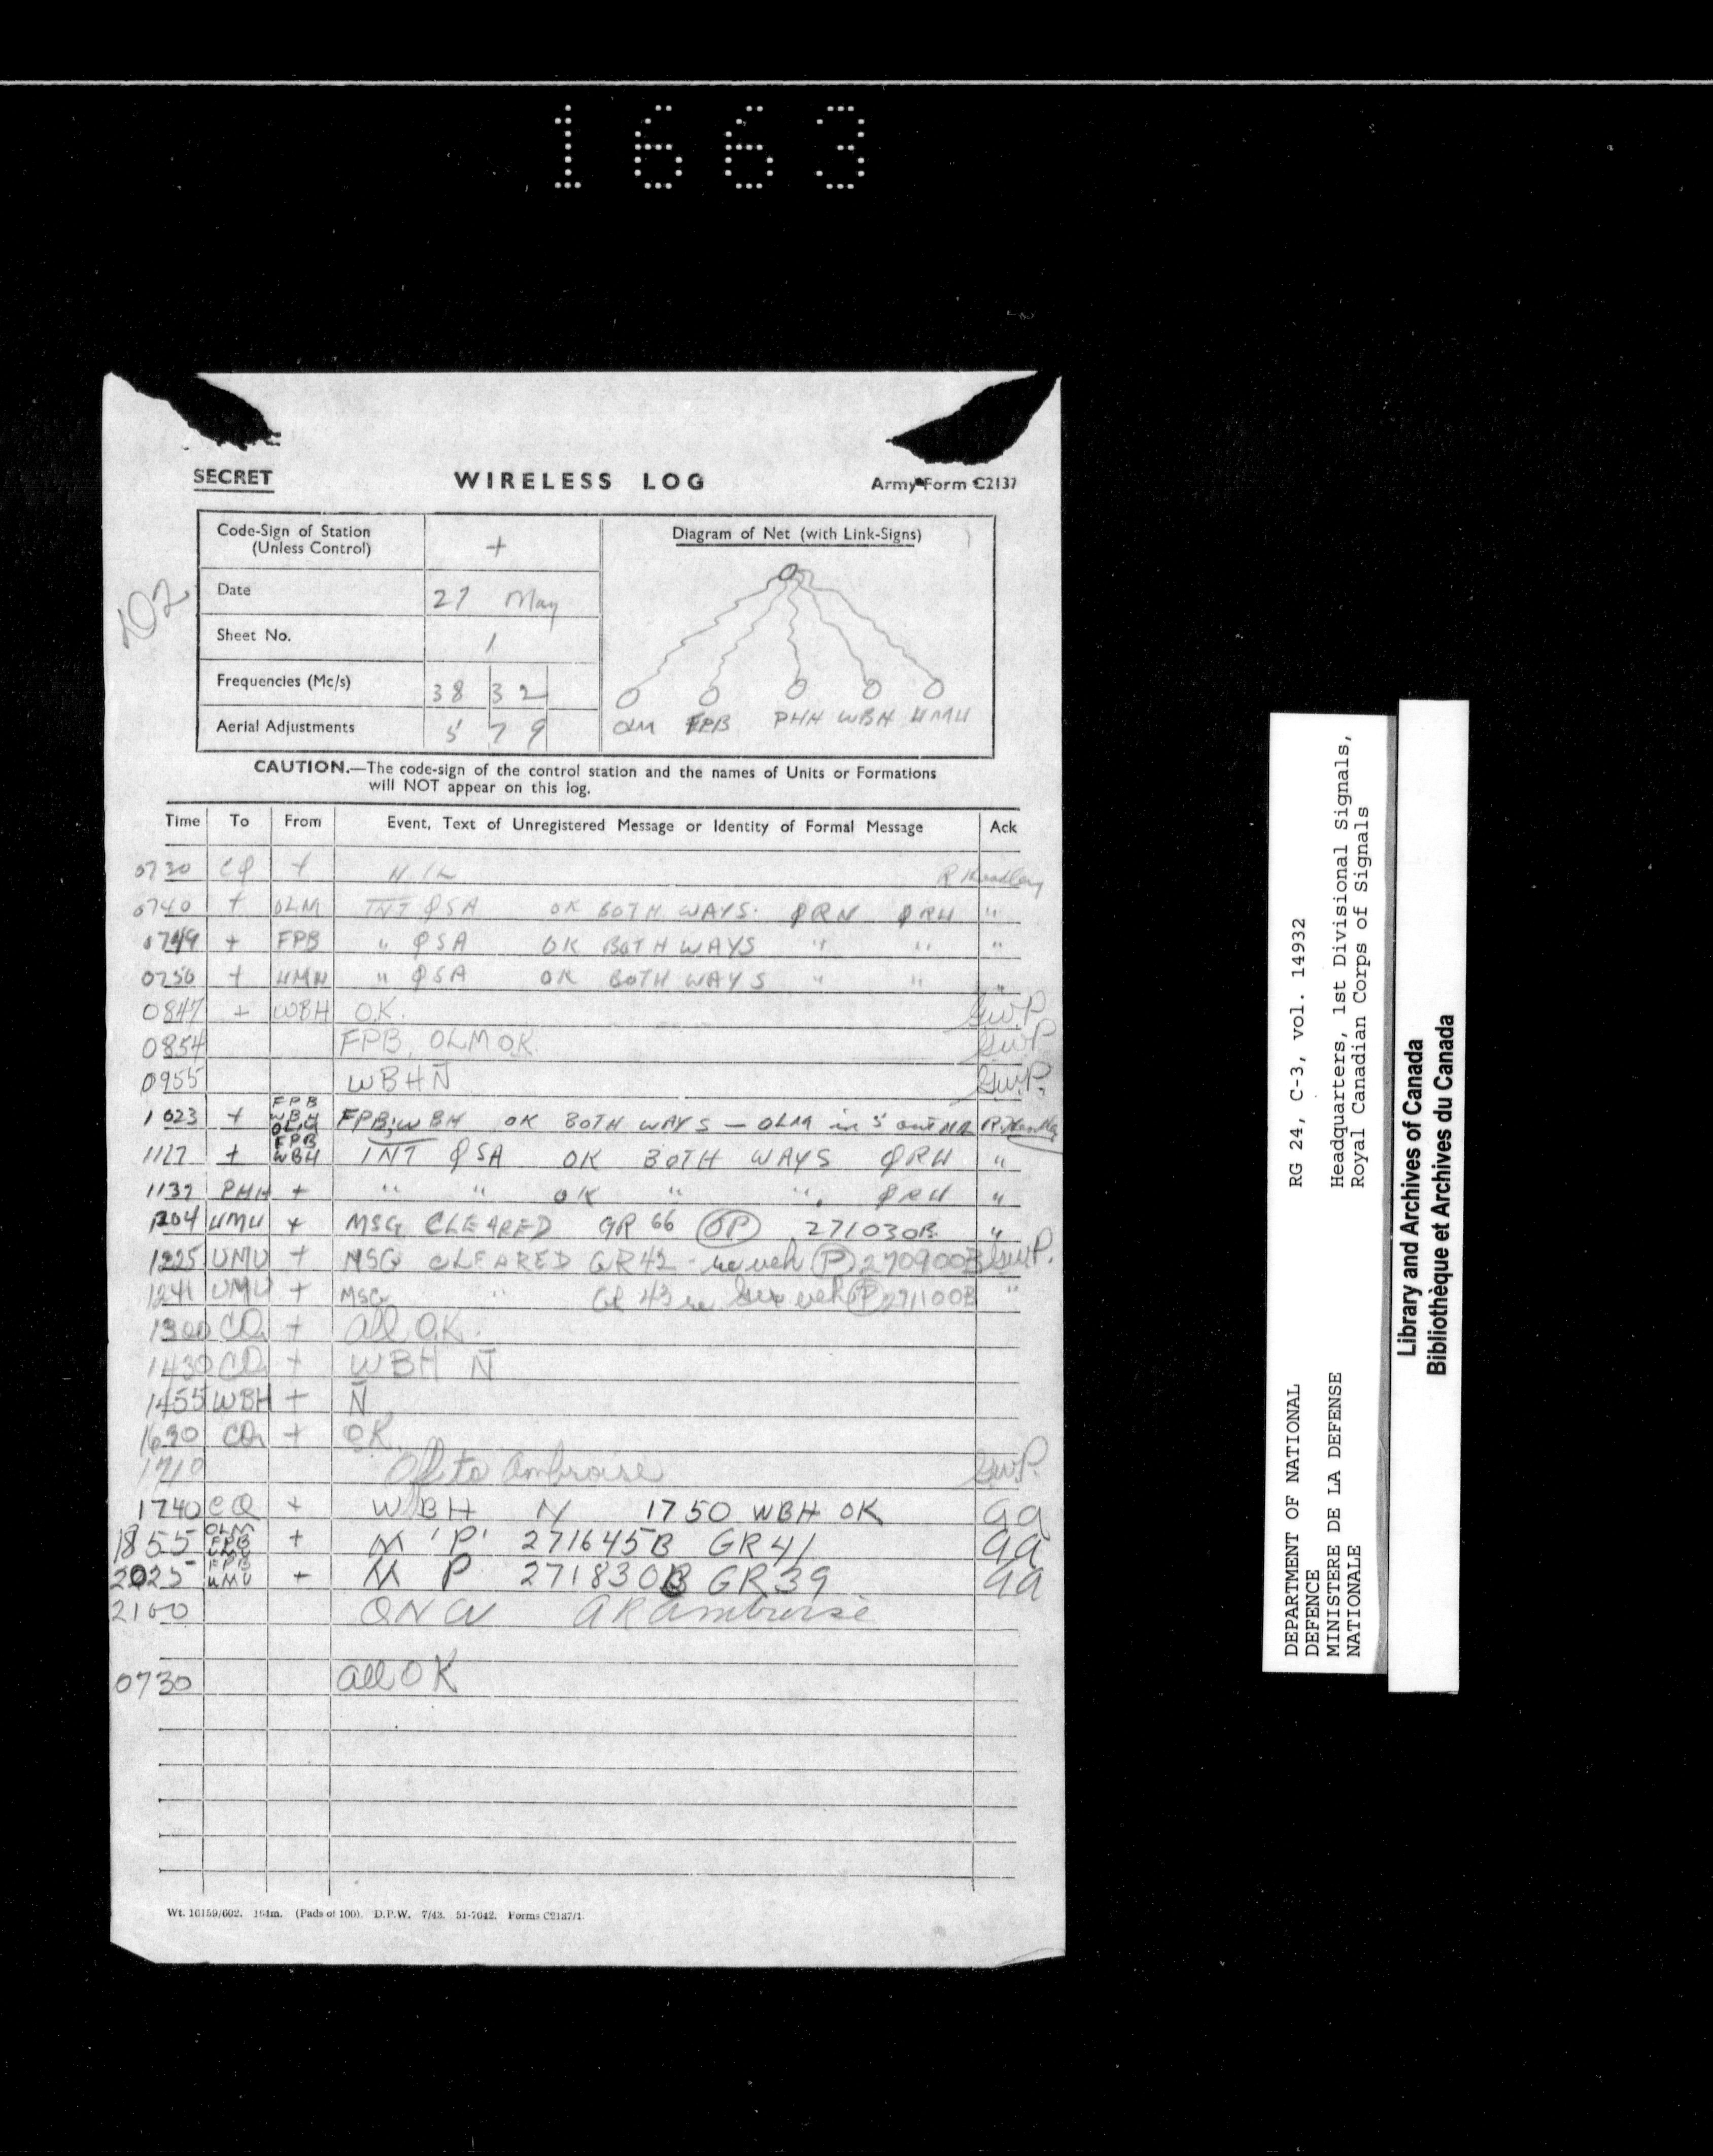 1663
SECRET WIRELESS LOG Army Form C2137
Code-Sign of Station
(Unless Control) +
Diagram of Net (with Link-Signs)
202
Date 27 May
Sheet No. 1
Frequencies (Mc/s) 38 32
Aerial Adjustments 5 7 9
OLM FPB PHH WBH UMU
CAUTION.—The code-sign of the control station and the names of Units or Formations
will NOT appear on this log.
Time To From Event, Text of Unregistered Message or Identity of Formal Message Ack
0730 CQ +
0740 + OLM INT QSA OK BOTH WAYS. QRN QRU "
0749 + FPB " QSA OK BOTH WAYS " " "
0750 + UMU " QSA OK BOTH WAYS " " "
0847 + WBH O.K. GwP
0854 FPB, OLM OK. GwP
0955 WBH N̄ GwP.
1023 + FPB WBH OLM FPB, WBH OK BOTH WAYS — OLM in 5 out
1127 + FPB WBH INT QSA OK BOTH WAYS QRU "
1137 PHH + " " OK " ", QRU "
1204 UMU + MSG CLEARED GR 66 OP 271030B "
1225 UMU + MSG CLEARED GR 42 - re veh P 270900B GwP.
1241 UMU + MSG " GR 43 re veh P 271100B "
1300 CQ + all O.K.
1430 CQ + WBH N̄
1455 WBH + N̄
1630 CQ + OK.
1710 Off to Ambroise GwP.
1740 CQ + WBH N 1750 WBH OK aa
1855 OLM FPB UMU + M 'P' 271645B GR 41 aa
2025 FPB UMU + M P 271830B GR 39 aa
2100 AR ambroise
0730 all OK
Wt. 16159/602. 164m. (Pads of 100). D.P.W. 7/43. 51-7042. Forms C2137/1.
RG 24, C-3, vol. 14932
Headquarters, 1st Divisional Signals,
Royal Canadian Corps of Signals
DEPARTMENT OF NATIONAL
DEFENCE
MINISTERE DE LA DEFENSE
NATIONALE
Library and Archives of Canada
Bibliothèque et Archives du Canada